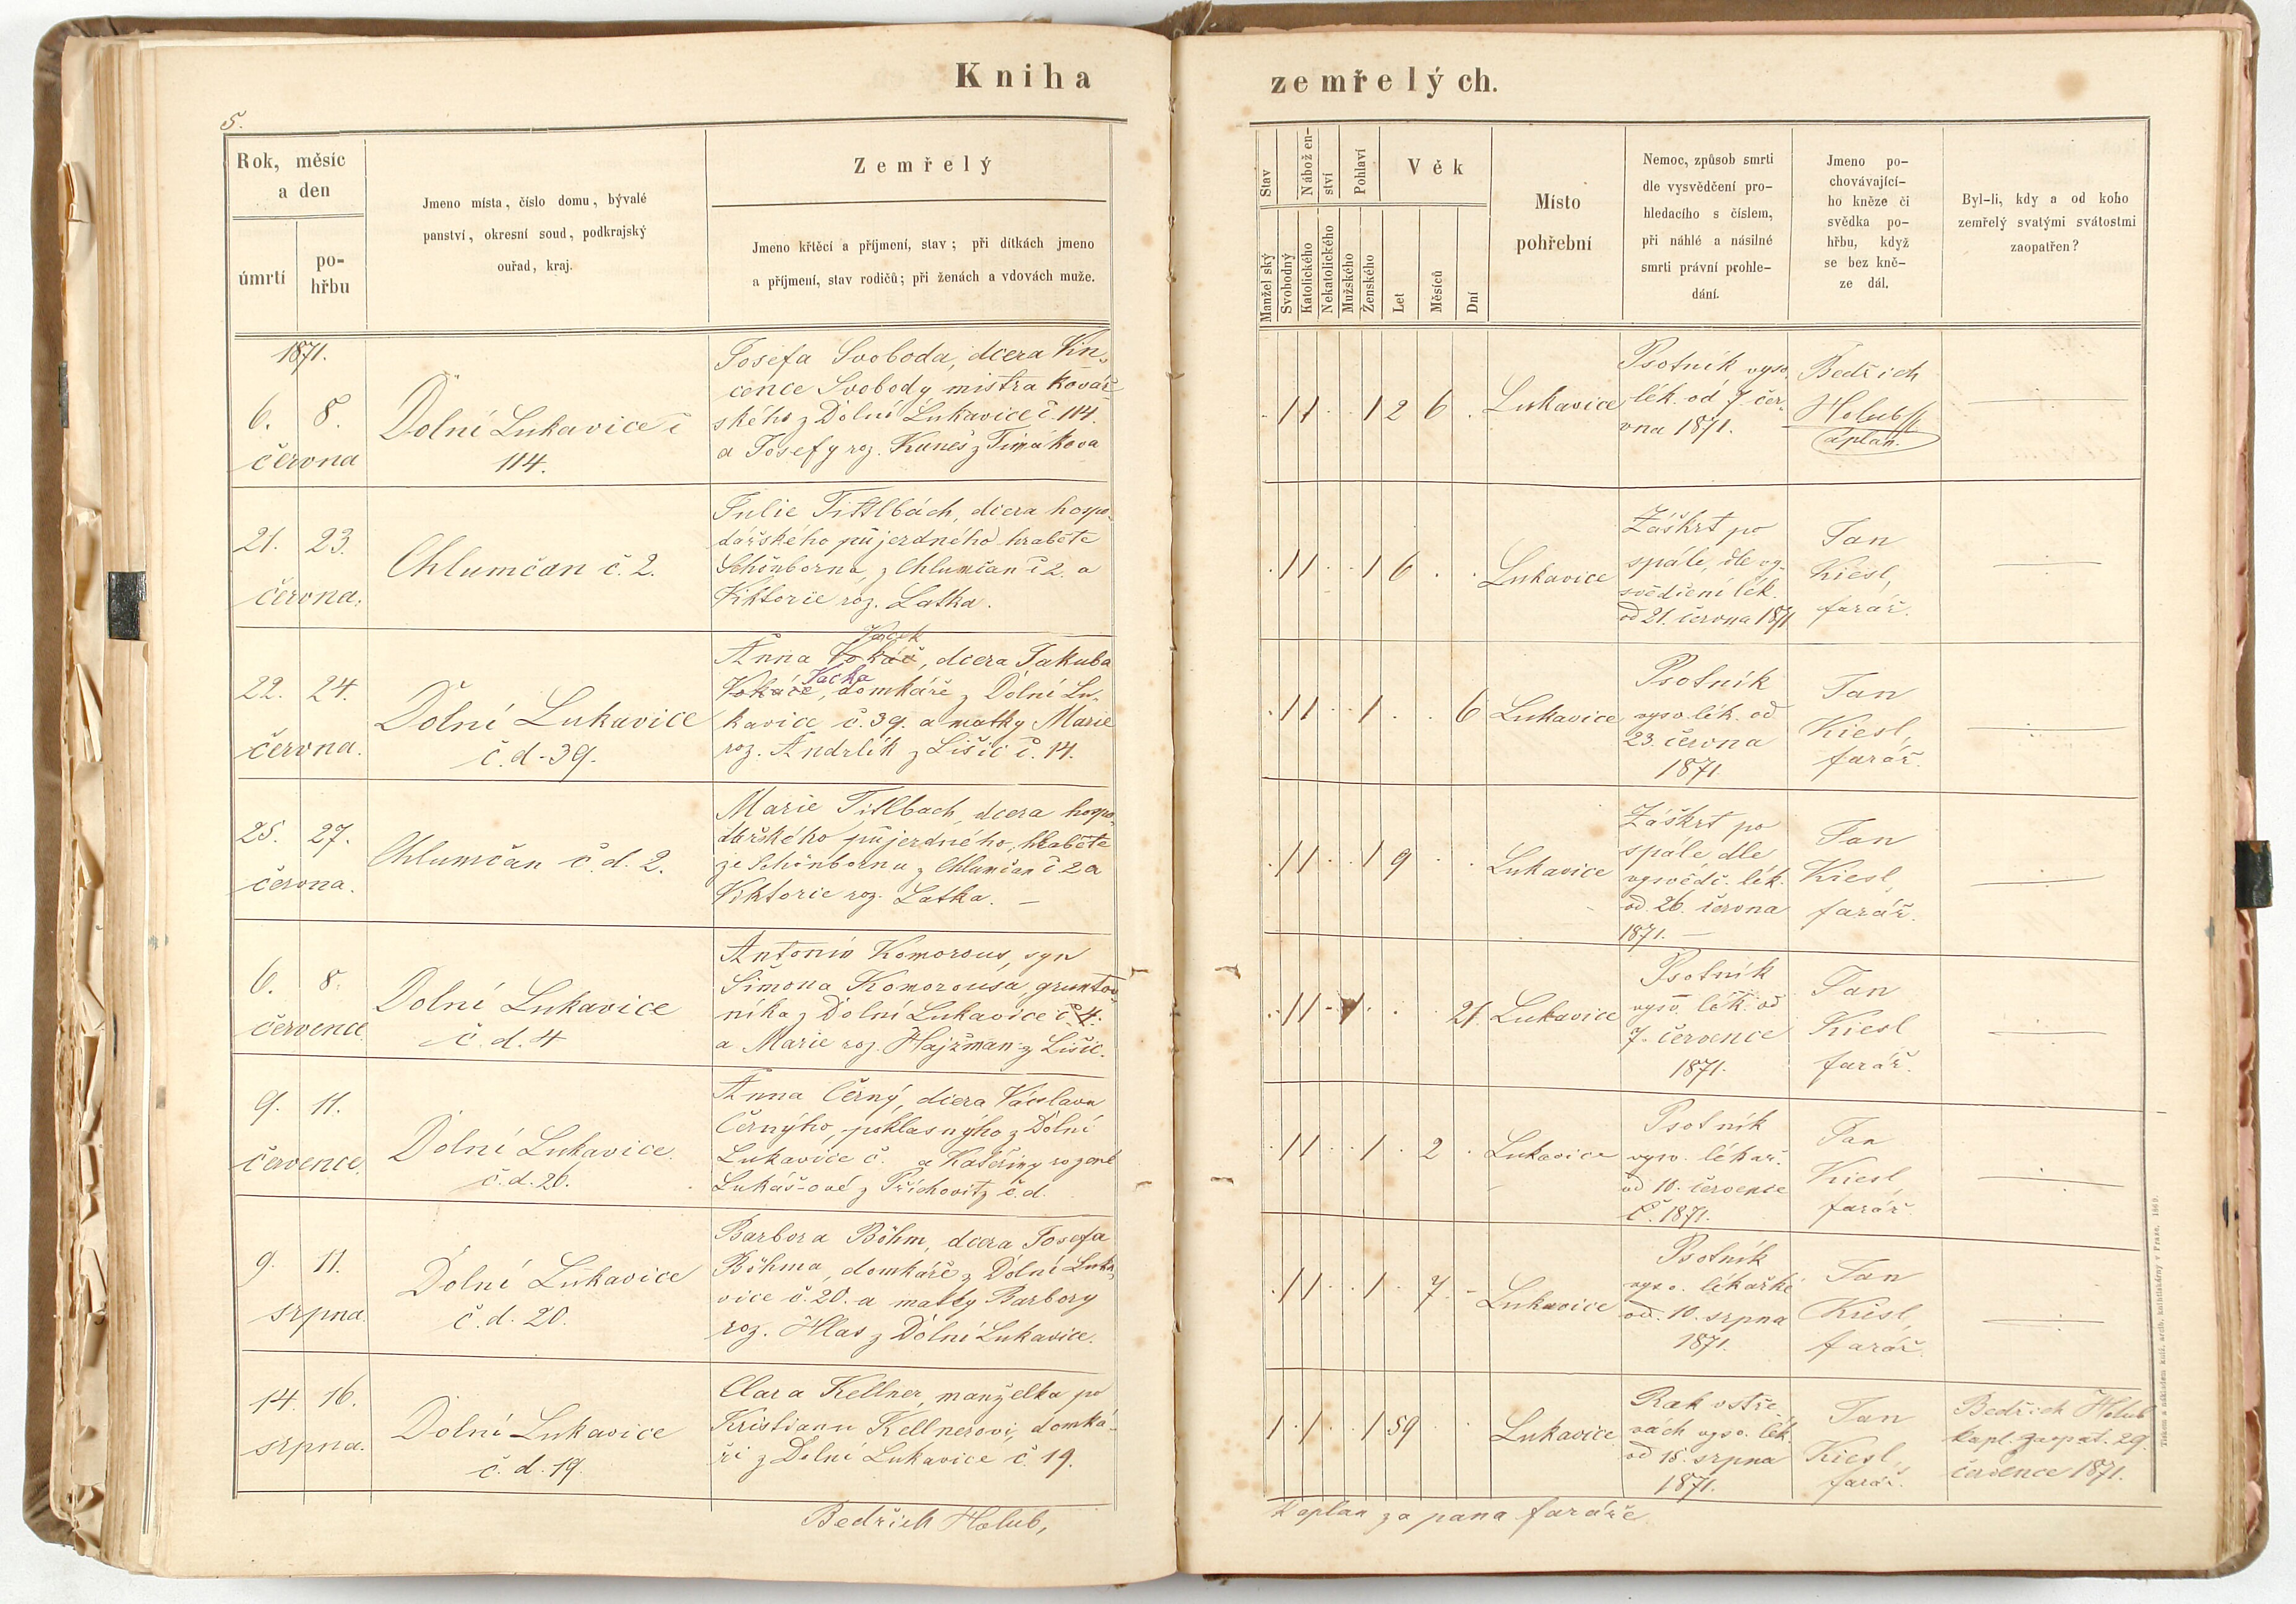 Kniha
zemřelých.
5.
Rok, měsíc
a den
úmrtí
po-
hřbu
Jmeno místa, číslo domu, bývalé
panství, okresní soud, podkrajský
ouřad, kraj.
Zemřelý
Jmeno křtěcí a příjmení, stav; při dítkách jmeno
a příjmení, stav rodičů; při ženách a vdovách muže.
Stav
Nábožen-
ství
Pohlaví
Věk
Manželský
Svobodný
Katolického
Nekatolického
Mužského
Ženského
Let
Měsíců
Dní
Místo
pohřební
Nemoc, způsob smrti
dle vysvědčení pro-
hledacího s číslem,
při náhlé a násilné
smrti právní prohle-
dání.
Jmeno po-
chovávající-
ho kněze či
svědka po-
hřbu, když
se bez kně-
ze dál.
Byl-li, kdy a od koho
zemřelý svatými svátostmi
zaopatřen?
1871.
6. 8.
června
Dolní Lukavice č
114.
Josefa Svoboda, dcera Vin-
cence Svobody mistra kovář-
ského z Dolní Lukavice č. 114.
a Josefy roz. Kuneš z Timákova
1 1 1 2 6
Lukavice
Psotník vysv.
lék. od 7. čer-
vna 1871.
Bedřich
Holub
kaplan.
21. 23.
června.
Chlumčan č. 2.
Julie Tittlbach, dcera hospo-
dářského půjezdného hraběte
Schönborna, z Chlumčan č 2. a
Viktorie roz. Latka.
1 1 1 6
Lukavice
Záškrt po
spále, dle vy-
svědčení lék.
od 21. června 1871
Jan
Kiesl,
farář.
22. 24.
června.
Dolní Lukavice
č. d. 39.
Vacek
Anna Vokáč, dcera Jakuba
Vacka
Vokáče, domkáře z Dolní Lu-
kavice č. 39. a matky Marie
roz. Andrlík z Lišic č. 14.
1 1 1 6
Lukavice
Psotník
vysv. lék. od
23. června
1871
Jan
Kiesl,
farář.
25. 27.
června.
Chlumčan č. d. 2.
Marie Titlbach, dcera hospo-
dářského půjezdného, hraběte
ze Schönbornu z Chlumčan č 2 a
Viktorie roz. Latka. —
1 1 1 9
Lukavice
Záškrt po
spále, dle
vysvědč. lék.
od. 26. června
1871. —
Jan
Kiesl,
farář.
6. 8.
července
Dolní Lukavice
č. d. 4
Antonín Komorous, syn
Šimona Komorousa, gruntov-
níka z Dolní Lukavice č. 4.
a Marie roz. Hajžman z Lišic.
1 1 1 21.
Lukavice
Psotník
vysv. lék. od
7. července
1871.
Jan
Kiesl
farář.
9. 11.
července.
Dolní Lukavice.
č. d. 26.
Anna Černý, dcera Václava
Černýho, poklasnýho z Dolní
Lukavice č. a Kateřiny rozené
Lukáš-ové z Příchovitz č. d.
1 1 1 2
Lukavice
Psotník
vysv. lékař.
od 10. července
č. 1871.
Jan
Kiesl
farář.
9. 11.
srpna.
Dolní Lukavice
č. d. 20.
Barbora Böhm, dcera Josefa
Böhma, domkáře z Dolní Luka-
vice č. 20. a matky Barbory
roz. Hlas z Dolní Lukavice.
1 1 1 7
Lukavice
Psotník
vysv. lékařké
od. 10. srpna
1871.
Jan
Kiesl,
farář.
14. 16.
srpna.
Dolní Lukavice
č. d. 19.
Clara Kellner, manželka po
Kristianu Kellnerovi, domká-
ři z Dolní Lukavice č. 19.
1 1 1 59
Lukavice
Rak v stře-
vách vysv. lék.
od 15. srpna
1871.
Jan
Kiesl,
farář.
Bedřich Holub
kapl. zaopat. 29.
července 1871.
Bedřich Holub,
kaplan za pana faráře